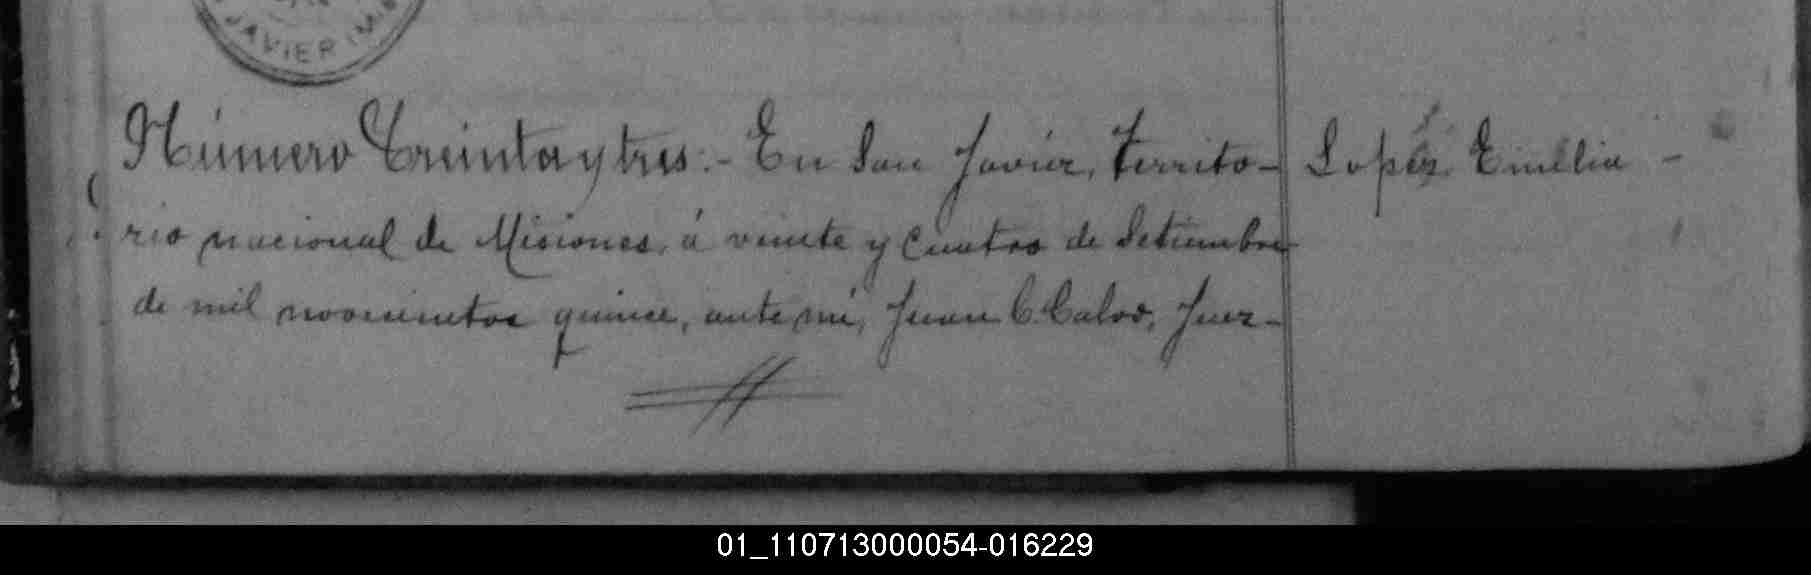 JAVIER (MIS
Número Treinta y tres:- En San Javier, Territo-
rio nacional de Misiones, á veinte y cuatro de Setiembre
de mil novecientos quince, ante mí, Juan C. Calvo, Juez-
Lopez Emilia -
01_110713000054-016229